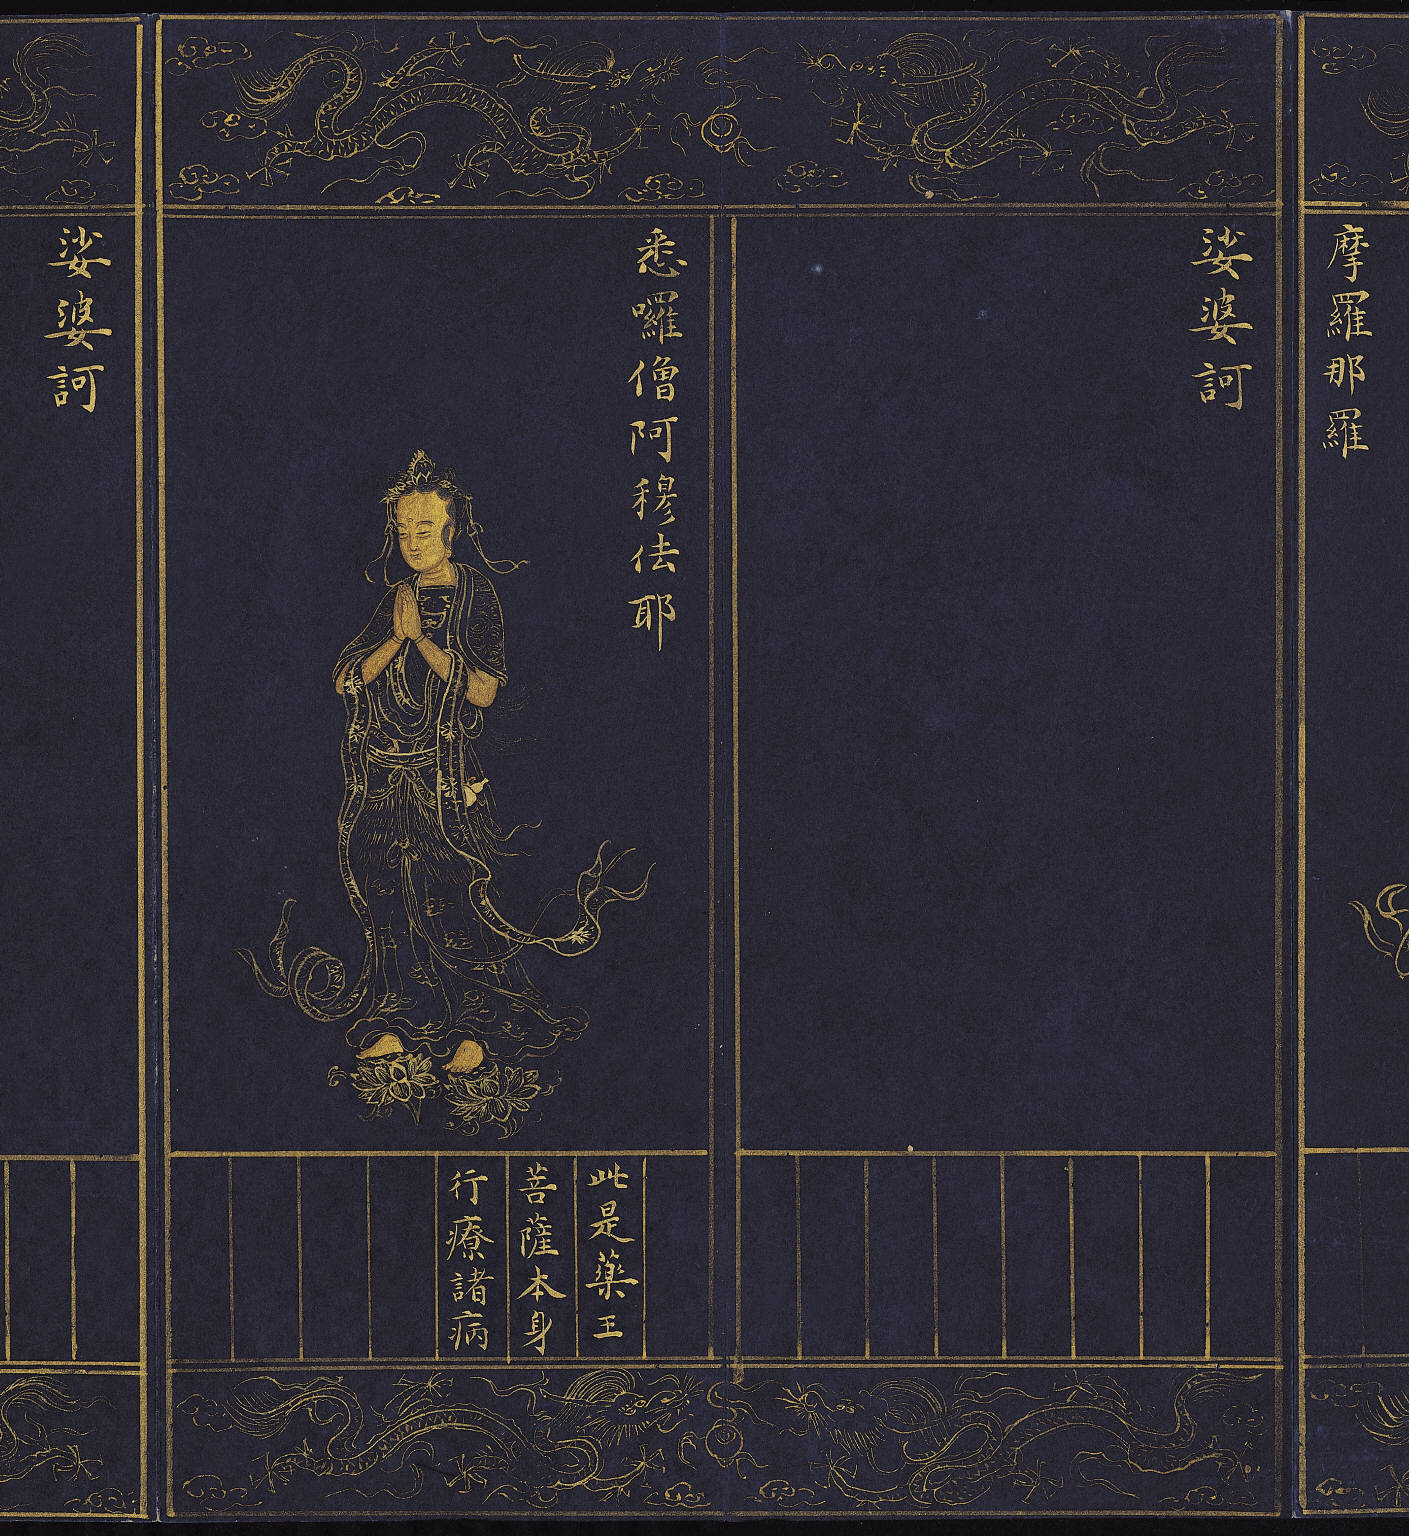 摩羅那羅
娑婆訶
悉囉僧阿穆佉耶
此是藥王
菩薩本身
行療諸病
娑婆訶